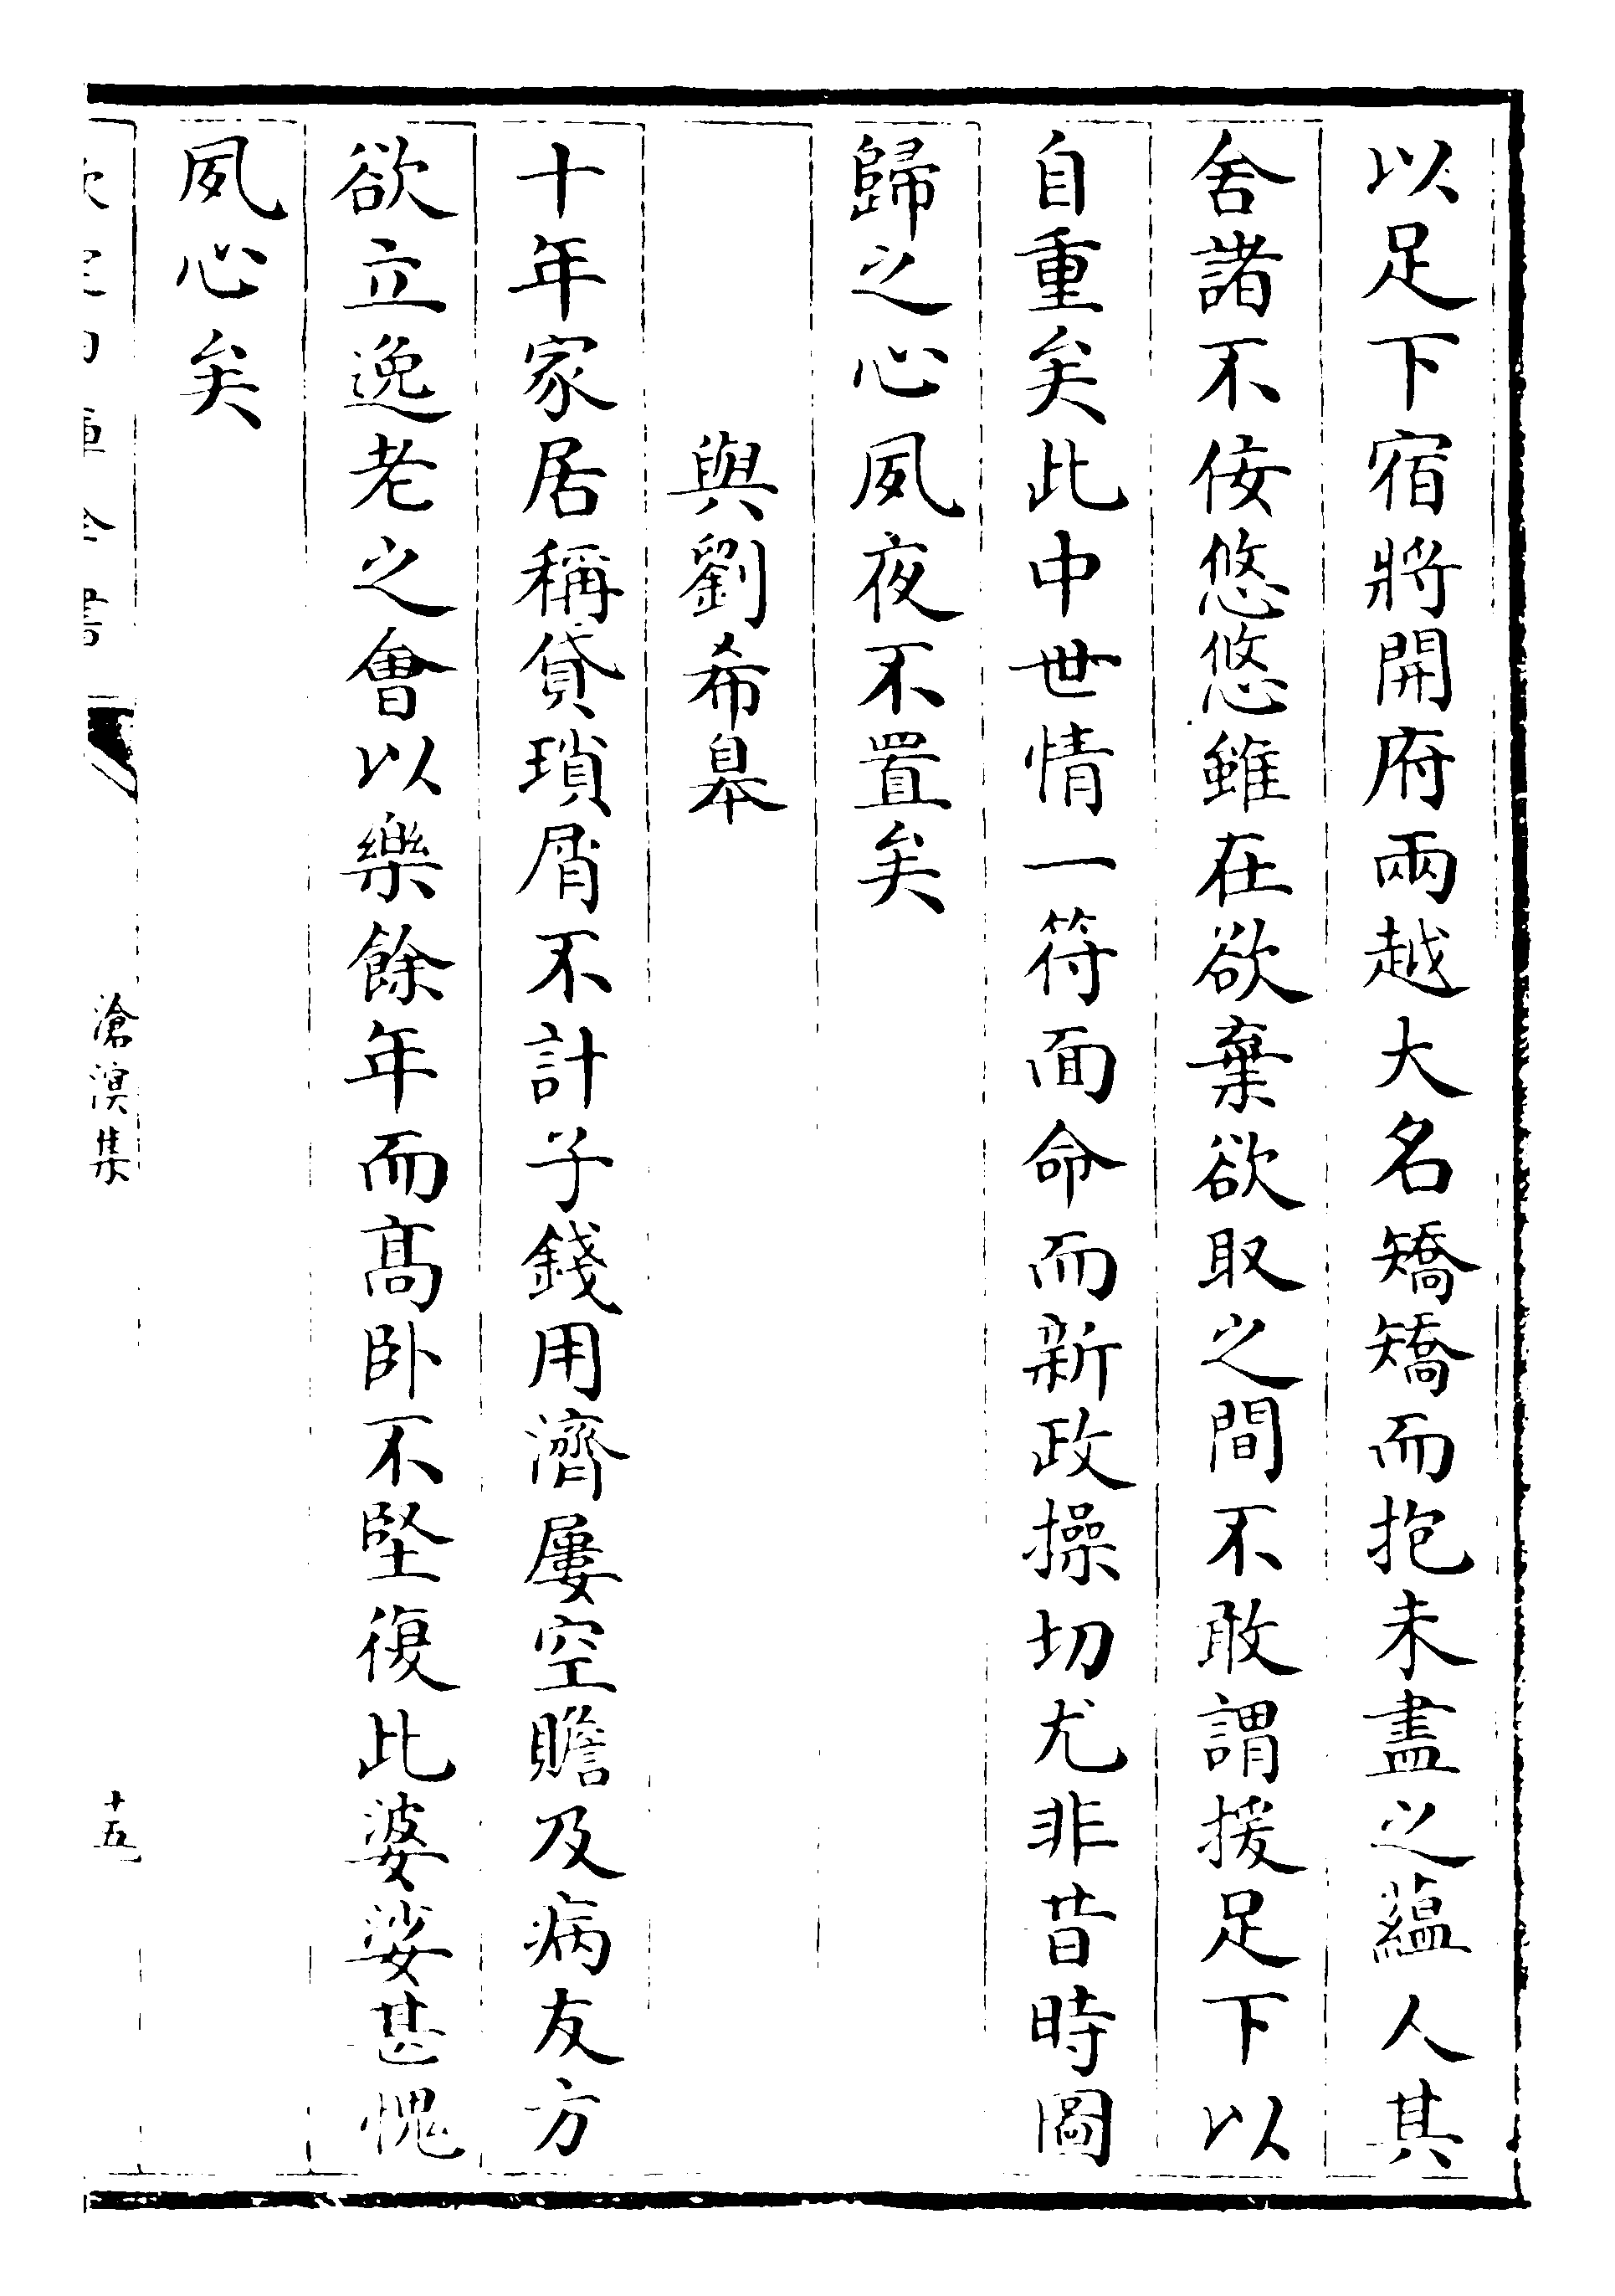 以足下宿將開府兩越大名矯矯而抱未盡之蘊人其
舍諸不佞悠悠雖在欲棄欲取之間不敢謂援足下以
自重矣此中世情一符面命而新政操切尤非昔時圖
歸之心夙夜不置矣
與劉希皋
十年家居稱貸瑣屑不計子錢用濟屢空贍及病友方
欲立逸老之會以樂餘年而高卧不堅復此婆娑甚愧
夙心矣
欽定四庫全書
滄溟集
十五